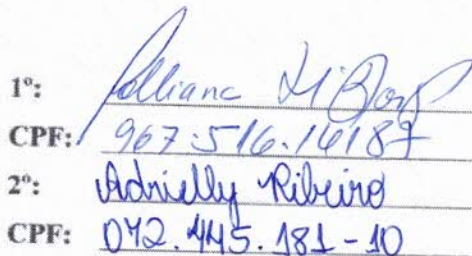 1º: Polliana
CPF: 967.516.161 87
2º: Adrielly Ribeiro
CPF: 072.445.181-10